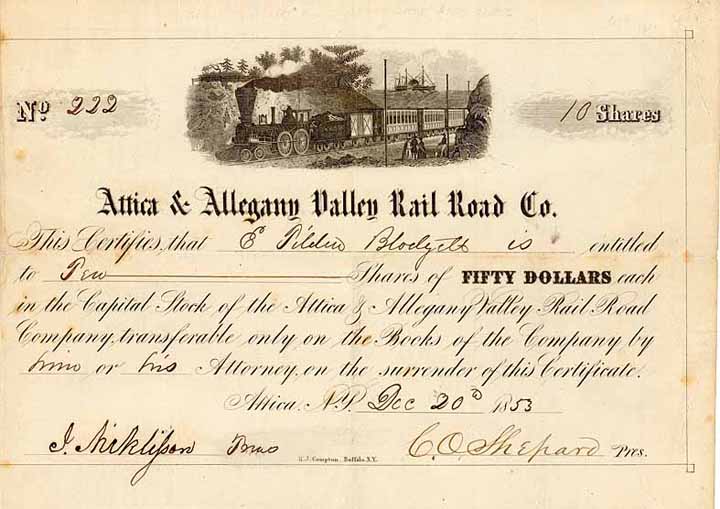 No 222
10 Shares
Attica & Allegany Valley Rail Road Co.
This Certifies, that E Tilden Blodgett is entitled
to Ten Shares of FIFTY DOLLARS each
in the Capital Stock of the Attica & Allegany Valley Rail Road
Company, transferable only on the Books of the Company by
him or his Attorney, on the surrender of this Certificate.
Attica, N.Y. Dec 20th 1853
J. Treas
C.O. Shepard Pres.
R.J. Compton, Buffalo N.Y.